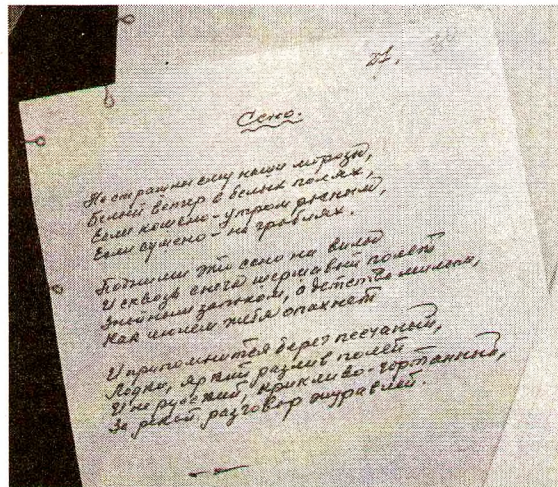 27.
Сено.
Не страшны ему наши морозы,
Белый ветер в белых полях,
Если кошено - утром росным,
Если сушено - на граблях.
Подними это сено на вилы
И сквозь снега шершавый полет
Знойным запахом, о детство милом,
Как огнем тебя опахнет
И припомнится берег песчаный,
Лодки, яркий разлив полей
И не русский, крикливо-гортанный,
За рекой разговор журавлей.